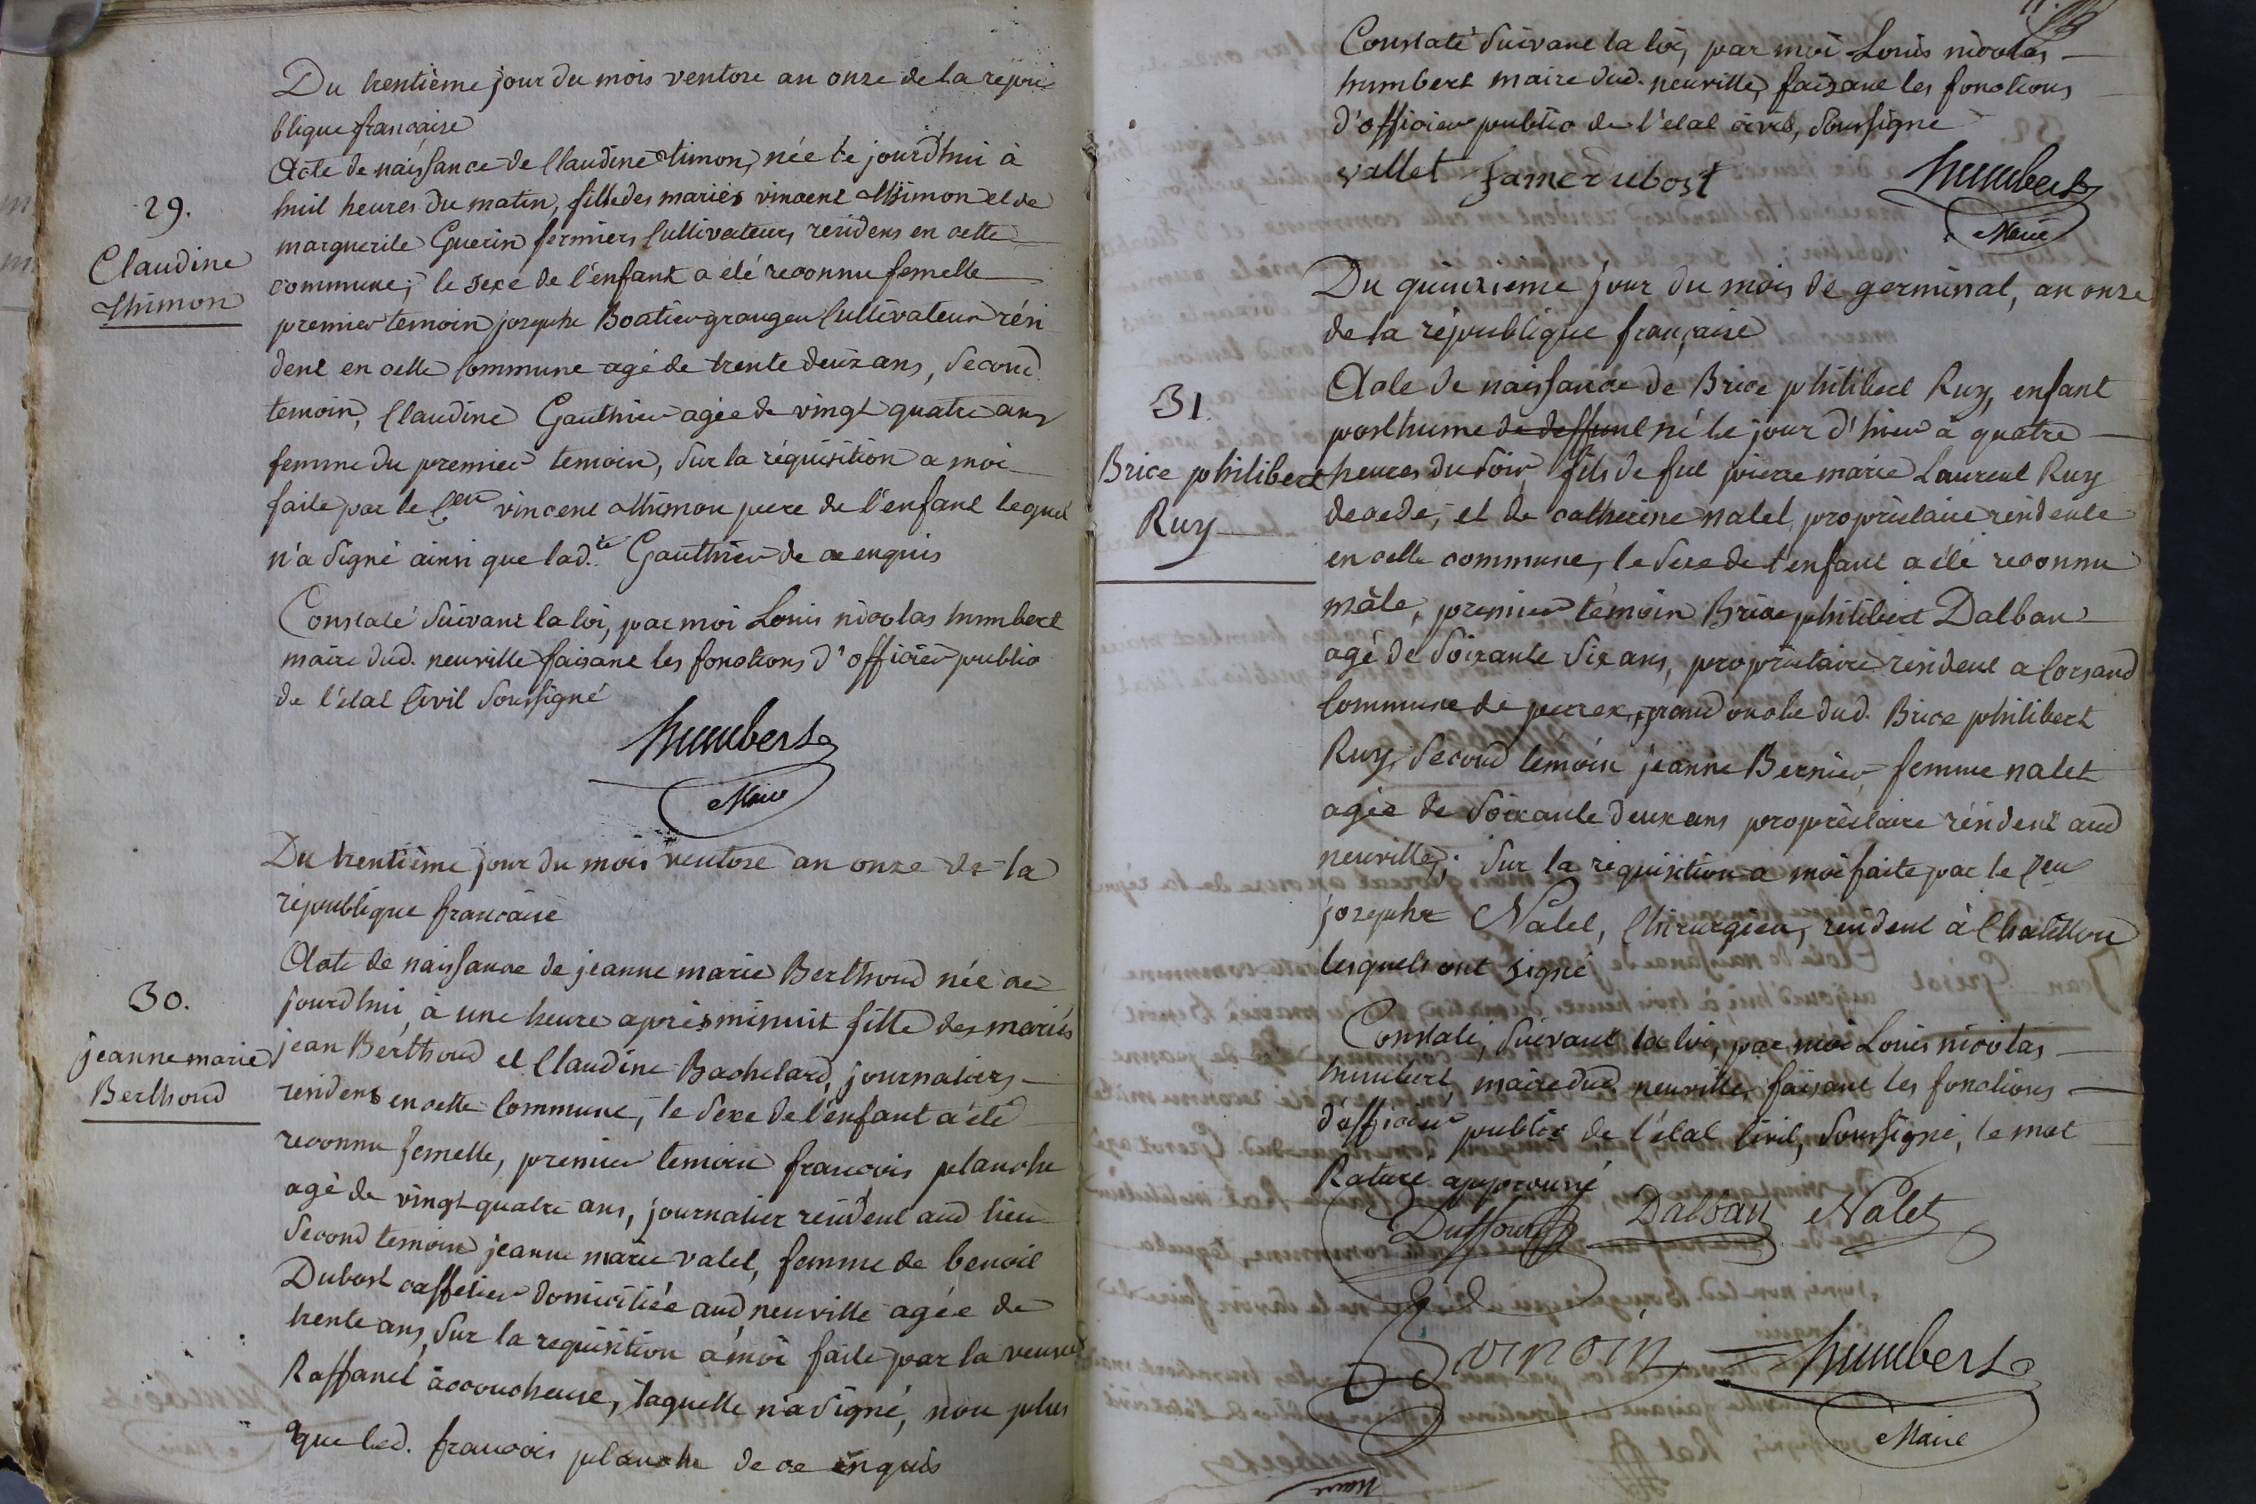 Du trentième jour du mois ventose an onze de la repu
blique française
29.
Claudine
Thimon
Acte de naissance de Claudine timon, née ce jourd'hui à
huit heures du matin, fille des mariés vincent Thimon et de
marguerite Guerin fermiers Cultivateurs, residens en cette
commune, le sexe de l'enfant a été reconnu femelle
premier temoin josephe Boatier granger Cultivateur rési
dent en cette Commune agé de trente deux ans, second
temoin, Claudine Gauthier agée de vingt quatre ans
femme du premier temoin, sur la réquisition a moi
faite par le Cen vincent Thimon pere de l'enfant lequel
n'a signé ainsi que lad.te Gauthier de ce enquis
Constaté suivant la loi, par moi Louis nicolas humbert
maire dud. neuville faisant les fonctions d'officier public
de l'état Civil soussigné
humbert
Maire
Du trentième jour du mois ventose an onze de la
république française
30.
jeanne marie
Berthoud
Acte de naissance de jeanne marie Berthoud née ce
jourd'hui, à une heure après minuit fille des mariés
jean Berthoud et Claudine Bachelard, journaliers
residens en cette Commune, le sexe de l'enfant a été
reconnu femelle, premier temoin francois planche
agé de vingt quatre ans, journalier résident aud lieu
second temoin jeanne marie valet, femme de benoit
Dubost caffetier domiciliée aud neuville agée de
trente ans, sur la requisition a moi faite par la veuve
Raffanel accoucheuse, laquelle n'a signé, non plus
que led. francois planche de ce enquis
Constaté suivant la loi, par moi Louis nicolas
humbert maire dud. neuville, faisant les fonctions
d'officier public de l'état civil, soussigné
vallet famedubost
humbert
Maire
Du quinzieme jour du mois de germinal, an onze
de la république française
31.
Brice philibert
Ruy
Acte de naissance de Brice philibert Ruy, enfant
posthume de deffunt né le jour d'hier à quatre
heures du soir, fils de fut pierre marie Laurent Ruy
decedé, et de catherine nalet, propriétaire résidente
en cette commune, le sexe de l'enfant a été reconnu
mâle, premier témoin Brice philibert Dalban
agé de soixante six ans, propriétaire résident a Corsand
Commune de perrex, grand oncle dud. Brice philibert
Ruy, second témoin jeanne Bernier femme nalet
agée de soixante deux ans propriétaire résident aud
neuville; sur la requisition a moi faite par le Cen
josephe Nalet, Chirurgien, resident à Chatillon
lesquels ont signé
Constaté, suivant la loi, par moi Louis nicolas
humbert, maire dud. neuville, faisant les fonctions
d'officier public de l'état Civil, soussigné, le mot
Raturé approuvé
Duffour Dalban Nalet
humbert
Maire